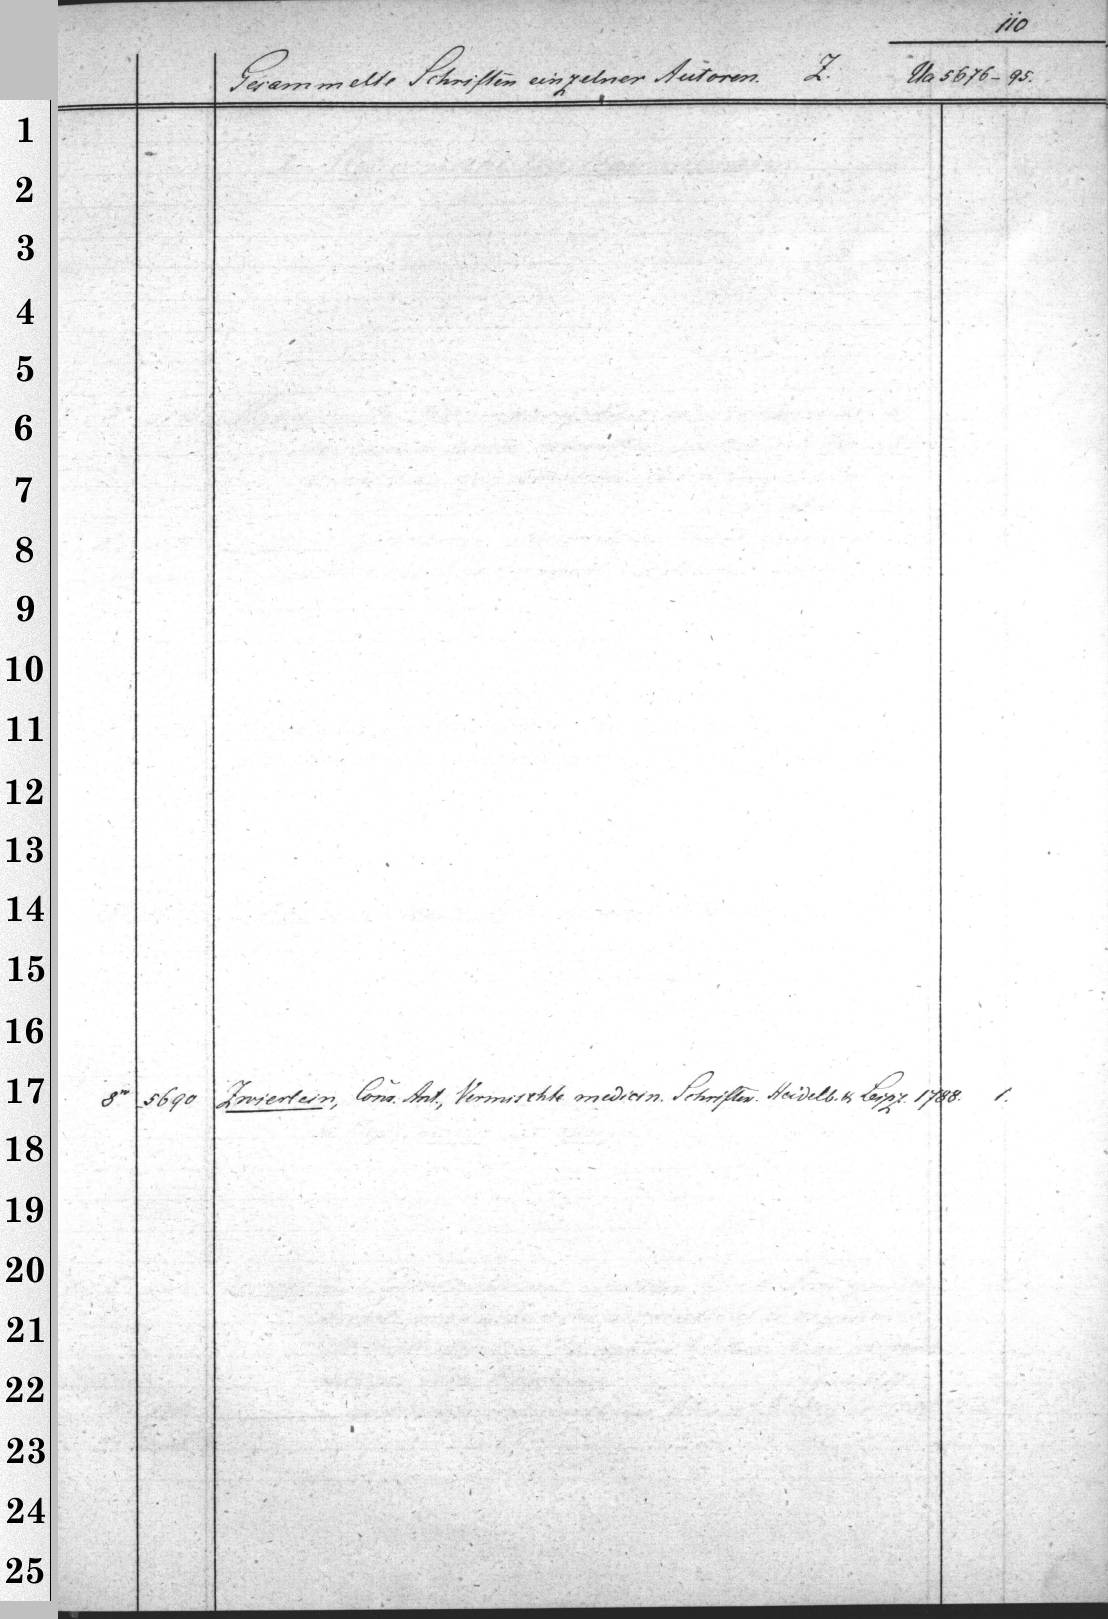 110
Gesammelte Schriften einzelner Autoren. Z. Ua 5676-95.
1
2
3
4
5
6
7
8
9
10
11
12
13
14
15
16
17 8º 5690 Zwierlein, Conr. Ant., Vermischte medicin. Schriften. Heidelb. & Leipz. 1788. 1.
18
19
20
21
22
23
24
25